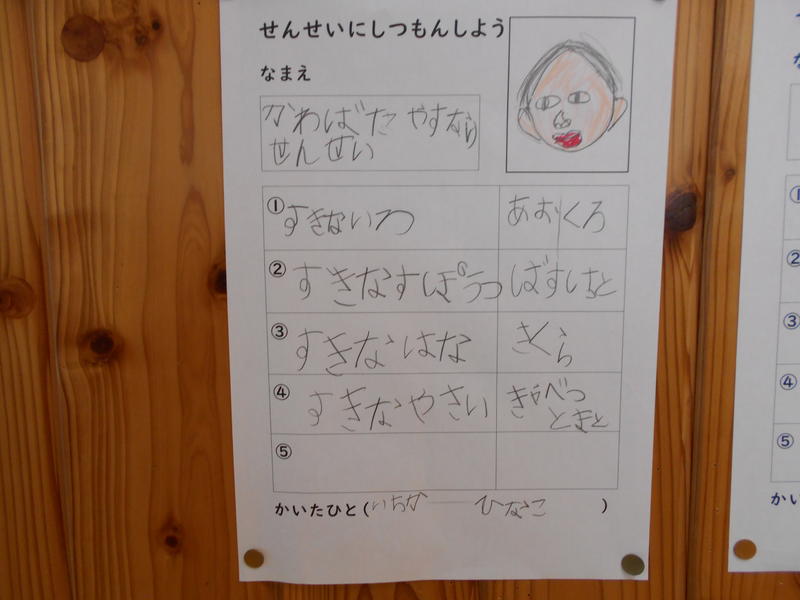 せんせいにしつもんしよう
なまえ
かわばた やすなり
せんせい
① すきないろ あお くろ
② すきなすぽうつ ばすけっと
③ すきなはな さくら
④ すきなやさい きゃべつ
とまと
⑤
かいたひと(いちか ひなこ )
①
②
③
④
⑤
かい